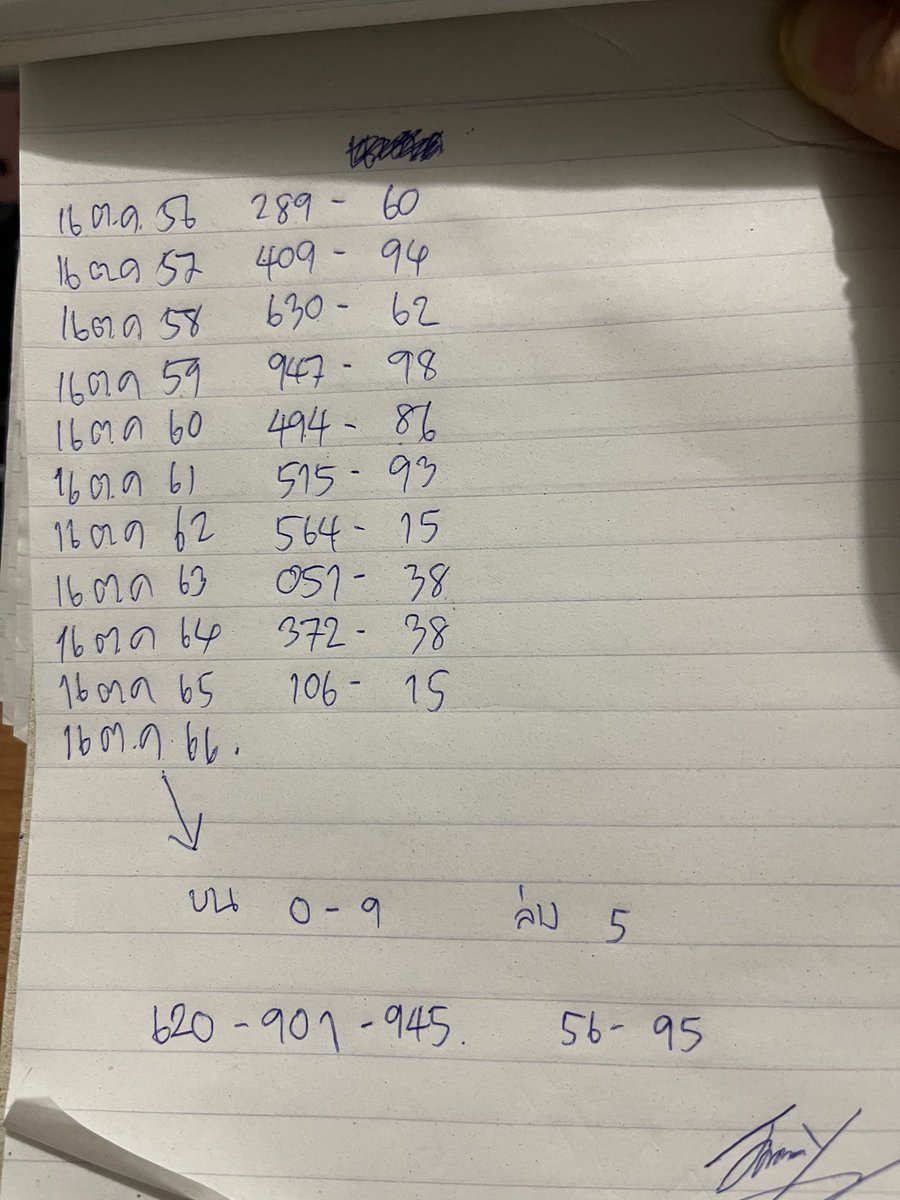 16 ต.ค. 56 289 - 60
16 ตค 57 409 - 94
16 ตค 58 630 - 62
16 ต.ค 59 947 - 98
16 ต.ค 60 494 - 86
16 ต.ค 61 515 - 93
16 ตค 62 564 - 15
16 ต.ค 63 051 - 38
16 ต.ค 64 372 - 38
16 ตค 65 106 - 15
16 ต.ค. 66.
บน 0 - 9 ล่าง 5
620 - 901 - 945. 56 - 95